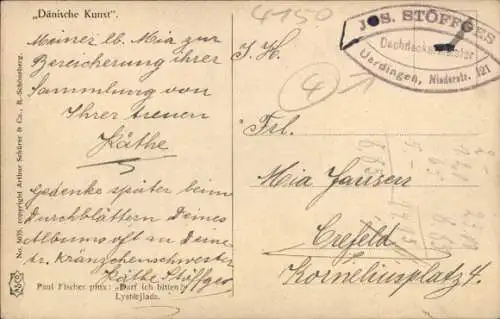 „Dänische Kunst“.
Meiner lb. Mia zur
Bereicherung ihrer
Sammlung von
Ihrer treuen
Käthe
Gedenke später beim
Durchblättern Deines
Albums oft an Deine
tr. Kränzchenschwester
Käthe Stöffges
Paul Fischer pinx: „Darf ich bitten?“
Lystejlads.
No. 5035. copyright Arthur Schürer & Co., B.-Schöneberg.
4150
4
JOS. STÖFFGES
Dachdeckermeister
Uerdingen, Niederstr. 121
I. H.
Frl.
Mia Jansen
Crefeld
Korneliusplatz 4.